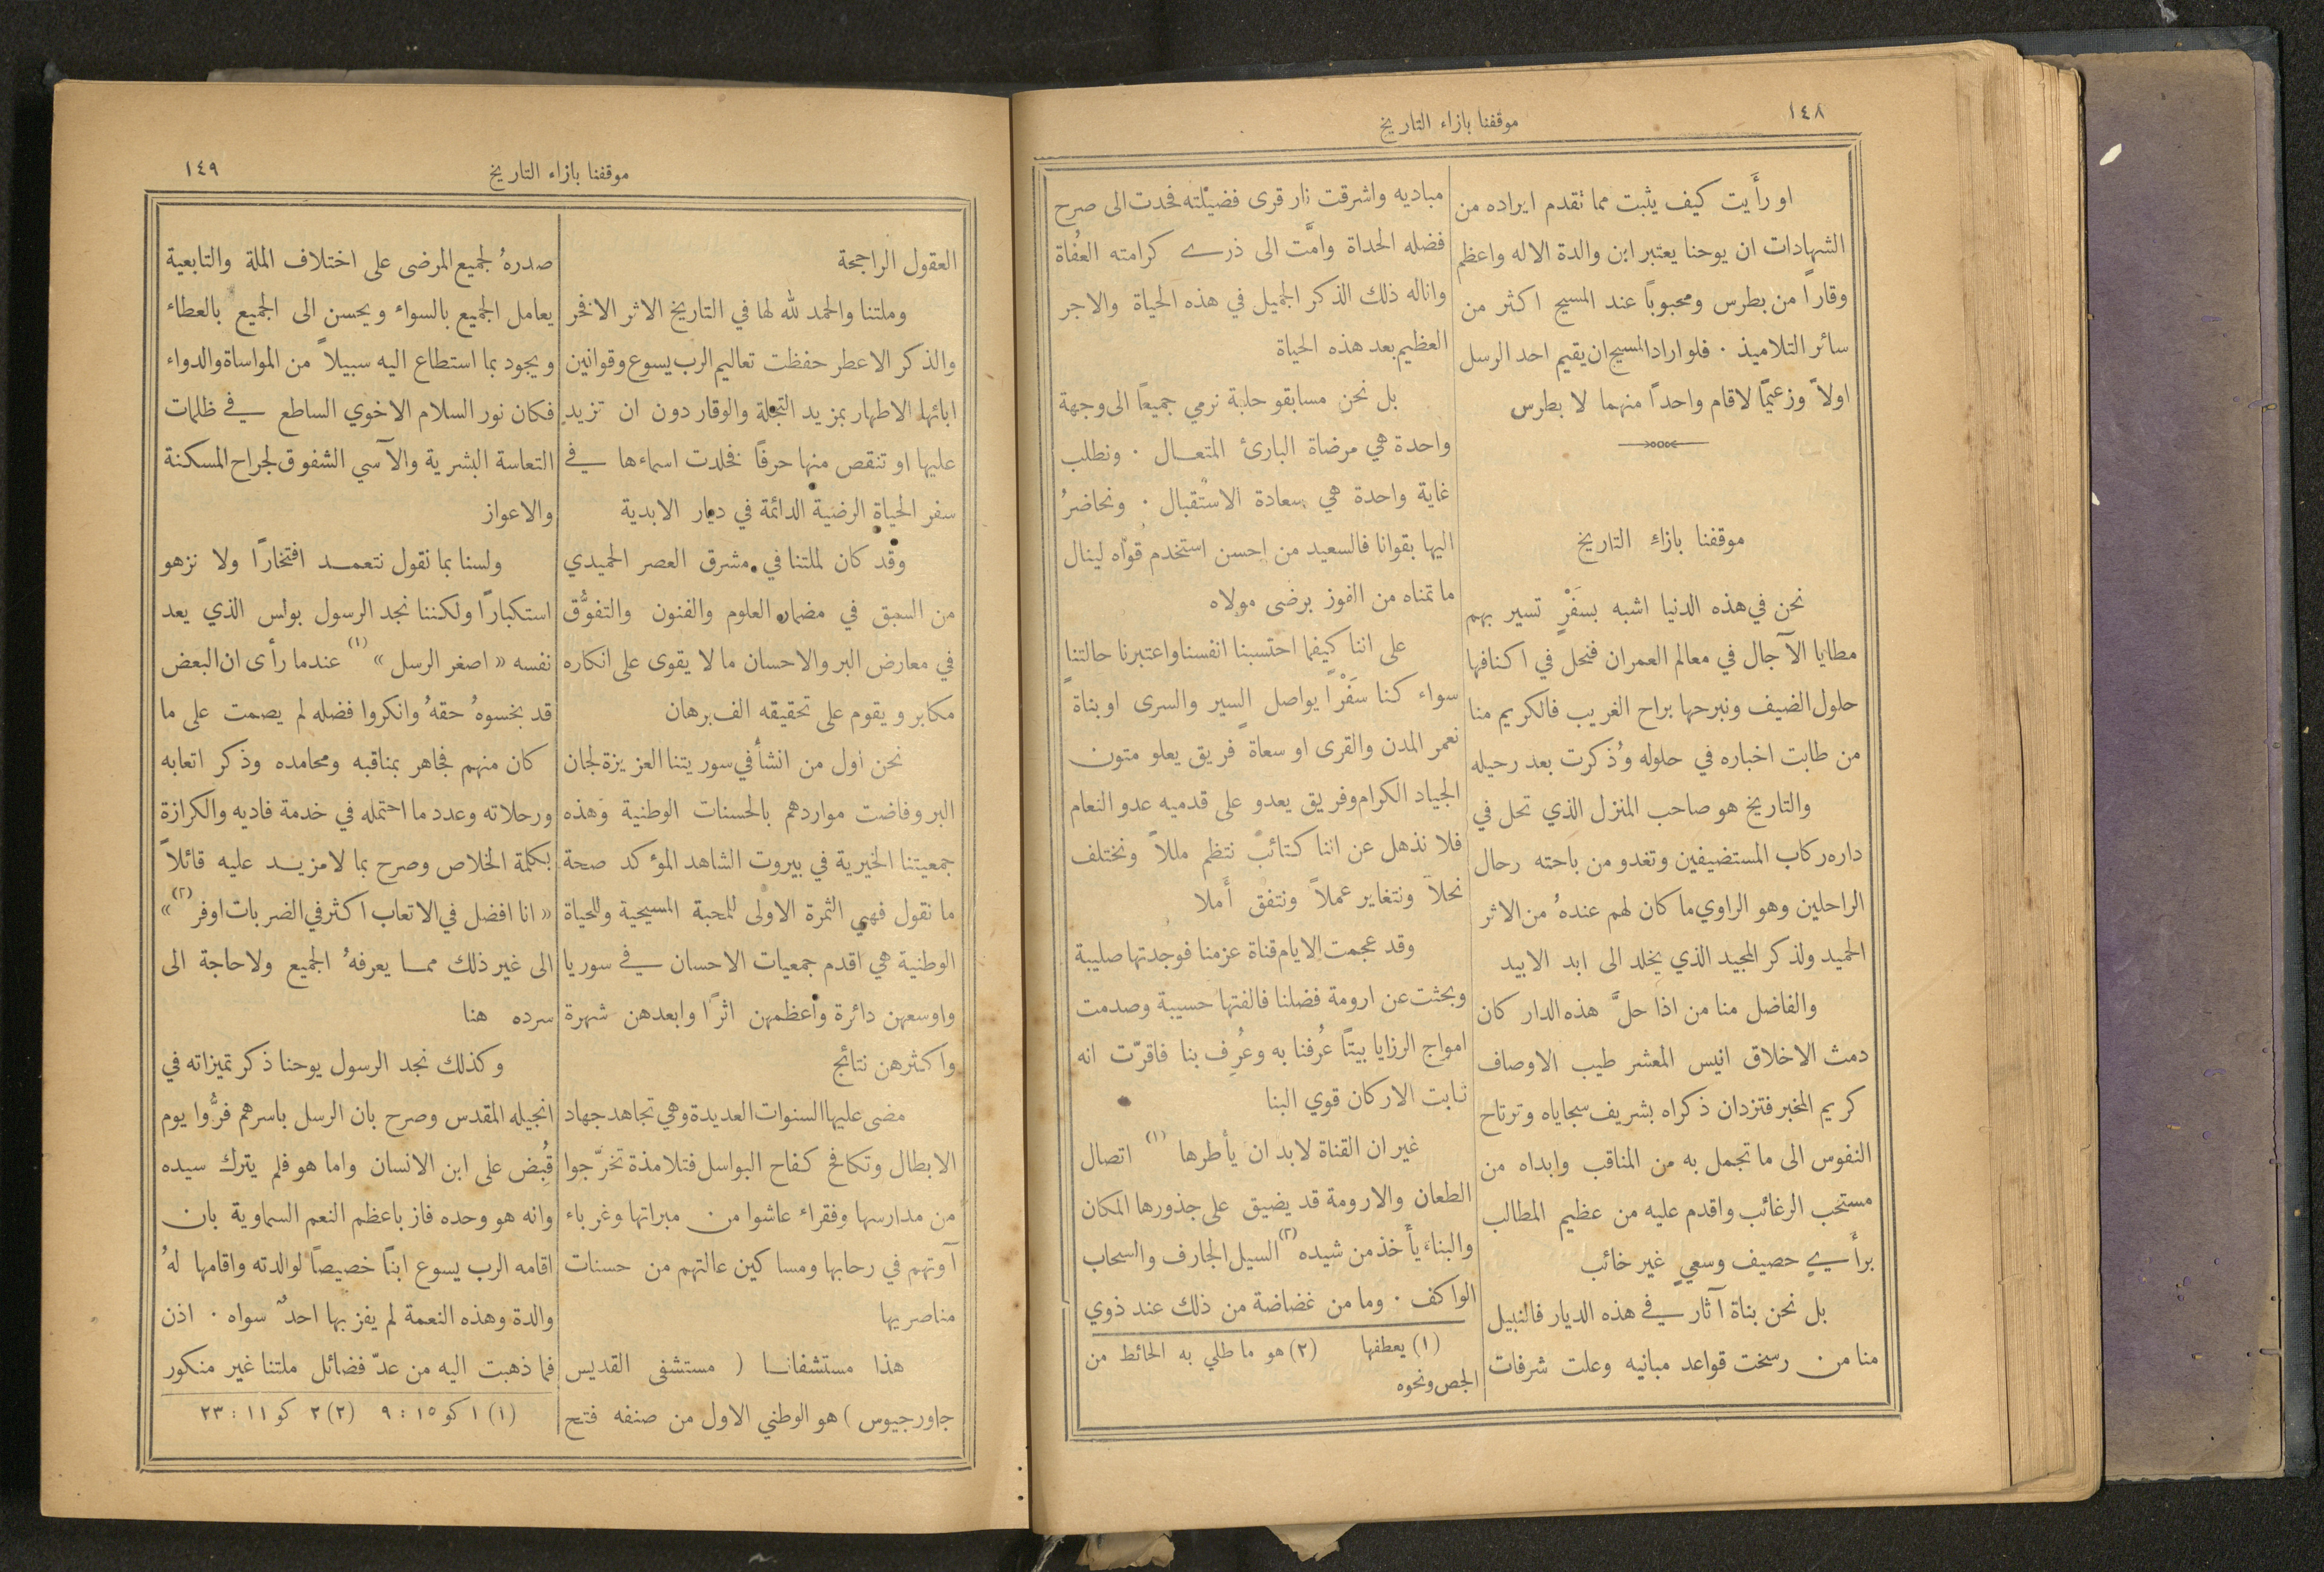 ١٤٨
موقفنا بازاء التاريخ
او رأَيت كيف يثبت مما تقدم ايراده من
الشهادات ان يوحنا يعتبر ابن والدة الاله واعظم
وقارًا من بطرس ومحبوبًا عند المسيح اكثر من
سائر التلاميذ ٠ فلو اراد المسيح ان يقيم احد الرسل
اولاً وزعيمًا لاقام واحدًا منهما لا بطرس
موقفنا بازاءِ التاريخ
نحن في هذه الدنيا اشبه بسَفْرٍ تسير بهم
مطايا الآجال في معالم العمران فنحل في اكنافها
حلول الضيف ونبرحها براح الغريب فالكريم منا
من طابت اخباره في حلوله وذُكرت بعد رحيله
والتاريخ هو صاحب المنزل الذي تحل في
داره ركاب المستضيفين وتغدو من باحته رحال
الراحلين وهو الراوي ما كان لهم عندهُ من الاثر
الحميد ولذكر المجيد الذي يخلد الى ابد الابيد
والفاضل منا من اذا حلَّ هذه الدار كان
دمث الاخلاق انيس المعشر طيب الاوصاف
كريم المخبر فتزدان ذكراه بشريف سجاياه وترتاح
النفوس الى ما تجمل به من المناقب وابداه من
مستحب الرغائب واقدم عليه من عظيم المطالب
برأَيٍ حصيف وسعيٍ غير خائب
بل نحن بناة آثار في هذه الديار فالنبيل
منا من رسخت قواعد مبانيه وعلت شرفات
مباديه واشرقت نار قرى فضيلته فحدت الى صرح
فضله الحداة وامَّت الى ذرى كرامته العفُاة
واناله ذلك الذكر الجميل في هذه الحياة والاجر
العظيم بعد هذه الحياة
بل نحن مسابقو حلبة نرمي جميعًا الى وجهة
واحدة هي مرضاة البارئ المتعال ٠ ونطلب
غاية واحدة هي سعادة الاستقبال ٠ ونحاضرُ
اليها بقوانا فالسعيد من احسن استخدم قوُاه لينال
ما تمناه من الفوز برضى مولاه
على اننا كيفما احتسبنا انفسنا واعتبرنا حالتنا
سواء كنا سَفْرًا يواصل السير والسرى او بناةً
نعمر المدن والقرى او سعاةً فريق يعلو متون
الجياد الكرام وفريق يعدو على قدميه عدو النعام
فلا نذهل عن اننا كتائبٌ نتظم مللاً ونختلف
نحلاً ونتغاير عملاً ونتفق أَملا
وقد عجمت الايام قناة عزمنا فوجدتها صليبة
وبحثت عن ارومة فضلنا فالفتها حسيبة وصدمت
امواج الرزايا بيتًا عُرفنا به وعُرِف بنا فاقرّت انه
ثابت الاركان قوي البنا
غير ان القناة لابد ان يأطرها (١) اتصال
الطعان والارومة قد يضيق على جذورها المكان
والبناء يأَخذ من شيده (٢) السيل الجارف والسحاب
الواكف ٠ وما من غضاضة من ذلك عند ذوي
(١) يعطفها (٢) هو ما طلي به الحائط من
الجص ونحوه
موقفنا بازاء التاريخ
١٤٩
العقول الراجحة
وملتنا والحمد لله لها في التاريخ الاثر الافخر
والذكر الاعطر حفظت تعاليم الرب يسوع وقوانين
ابائها الاطهار بمزيد التجلة والوقار دون ان تزيد
عليها او تنقص منها حرفًا فخلدت اسماءها في
سفر الحياة الرضية الدائمة في ديار الابدية
وقد كان لملتنا في مشرق العصر الحميدي
من السبق في مضمار العلوم والفنون والتفوُّق
في معارض البر والاحسان ما لا يقوى على انكاره
مكابر ويقوم على تحقيقه الف برهان
نحن اول من انشأ في سوريتنا العزيزة لجان
البر وفاضت مواردهم بالحسنات الوطنية وهذه
جمعيتنا الخيرية في بيروت الشاهد المؤكد صحة
ما نقول فهي الثمرة الاولى للمحبة المسيحية وللحياة
الوطنية هي اقدم جمعيات الاحسان في سوريا
واوسعهن دائرة واعظمهن اثرًا وابعدهن شهرة
واكثرهن نتائج
مضى عليها السنوات العديدة وهي تجاهد جهاد
الابطال وتكافح كفاح البواسل فتلامذة تخرّجوا
من مدارسها وفقراء عاشوا من مبراتها وغرباء
آوتهم في رحابها ومساكين عالتهم من حسنات
مناصريها
هذا مستشفانا ( مستشفى القديس
جاورجيوس ) هو الوطني الاول من صنفه فتح
صدرهُ لجميع المرضى على اختلاف الملة والتابعية
يعامل الجميع بالسواء ويحسن الى الجميع بالعطاء
ويجود بما استطاع اليه سبيلاً من المواساة والدواء
فكان نور السلام الاخوي الساطع في ظلمات
التعاسة البشرية والآسي الشفوق لجراح المسكنة
والاعواز
ولسنا بما نقول نتعمد افتخارًا ولا نزهو
استكبارًا ولكننا نجد الرسول بولس الذي يعد
نفسه « اصغر الرسل » (١) عندما رأى ان البعض
قد بخسوهُ حقهُ وانكروا فضله لم يصمت على ما
كان منهم فجاهر بمناقبه ومحامده وذكر اتعابه
ورحلاته وعدد ما احتمله في خدمة فاديه والكرازة
بكلمة الخلاص وصرح بما لا مزيد عليه قائلاً
« انا افضل في الاتعاب اكثر في الضربات اوفر (٢) »
الى غير ذلك مما يعرفهُ الجميع ولا حاجة الى
سرده هنا
وكذلك نجد الرسول يوحنا ذكر تميزاته في
انجيله المقدس وصرح بان الرسل باسرهم فرُّوا يوم
قُبِض على ابن الانسان واما هو فلم يترك سيده
وانه هو وحده فاز باعظم النعم السماوية بان
اقامه الرب يسوع ابنًا خصيصًا لوالدته واقامها لهُ
والدة وهذه النعمة لم يفز بها احدٌ سواه ٠ اذن
فما ذهبت اليه من عدّ فضائل ملتنا غير منكور
(١) ١ كو ١٥ : ٩ (٢) ٢ كو ١١ : ٢٣